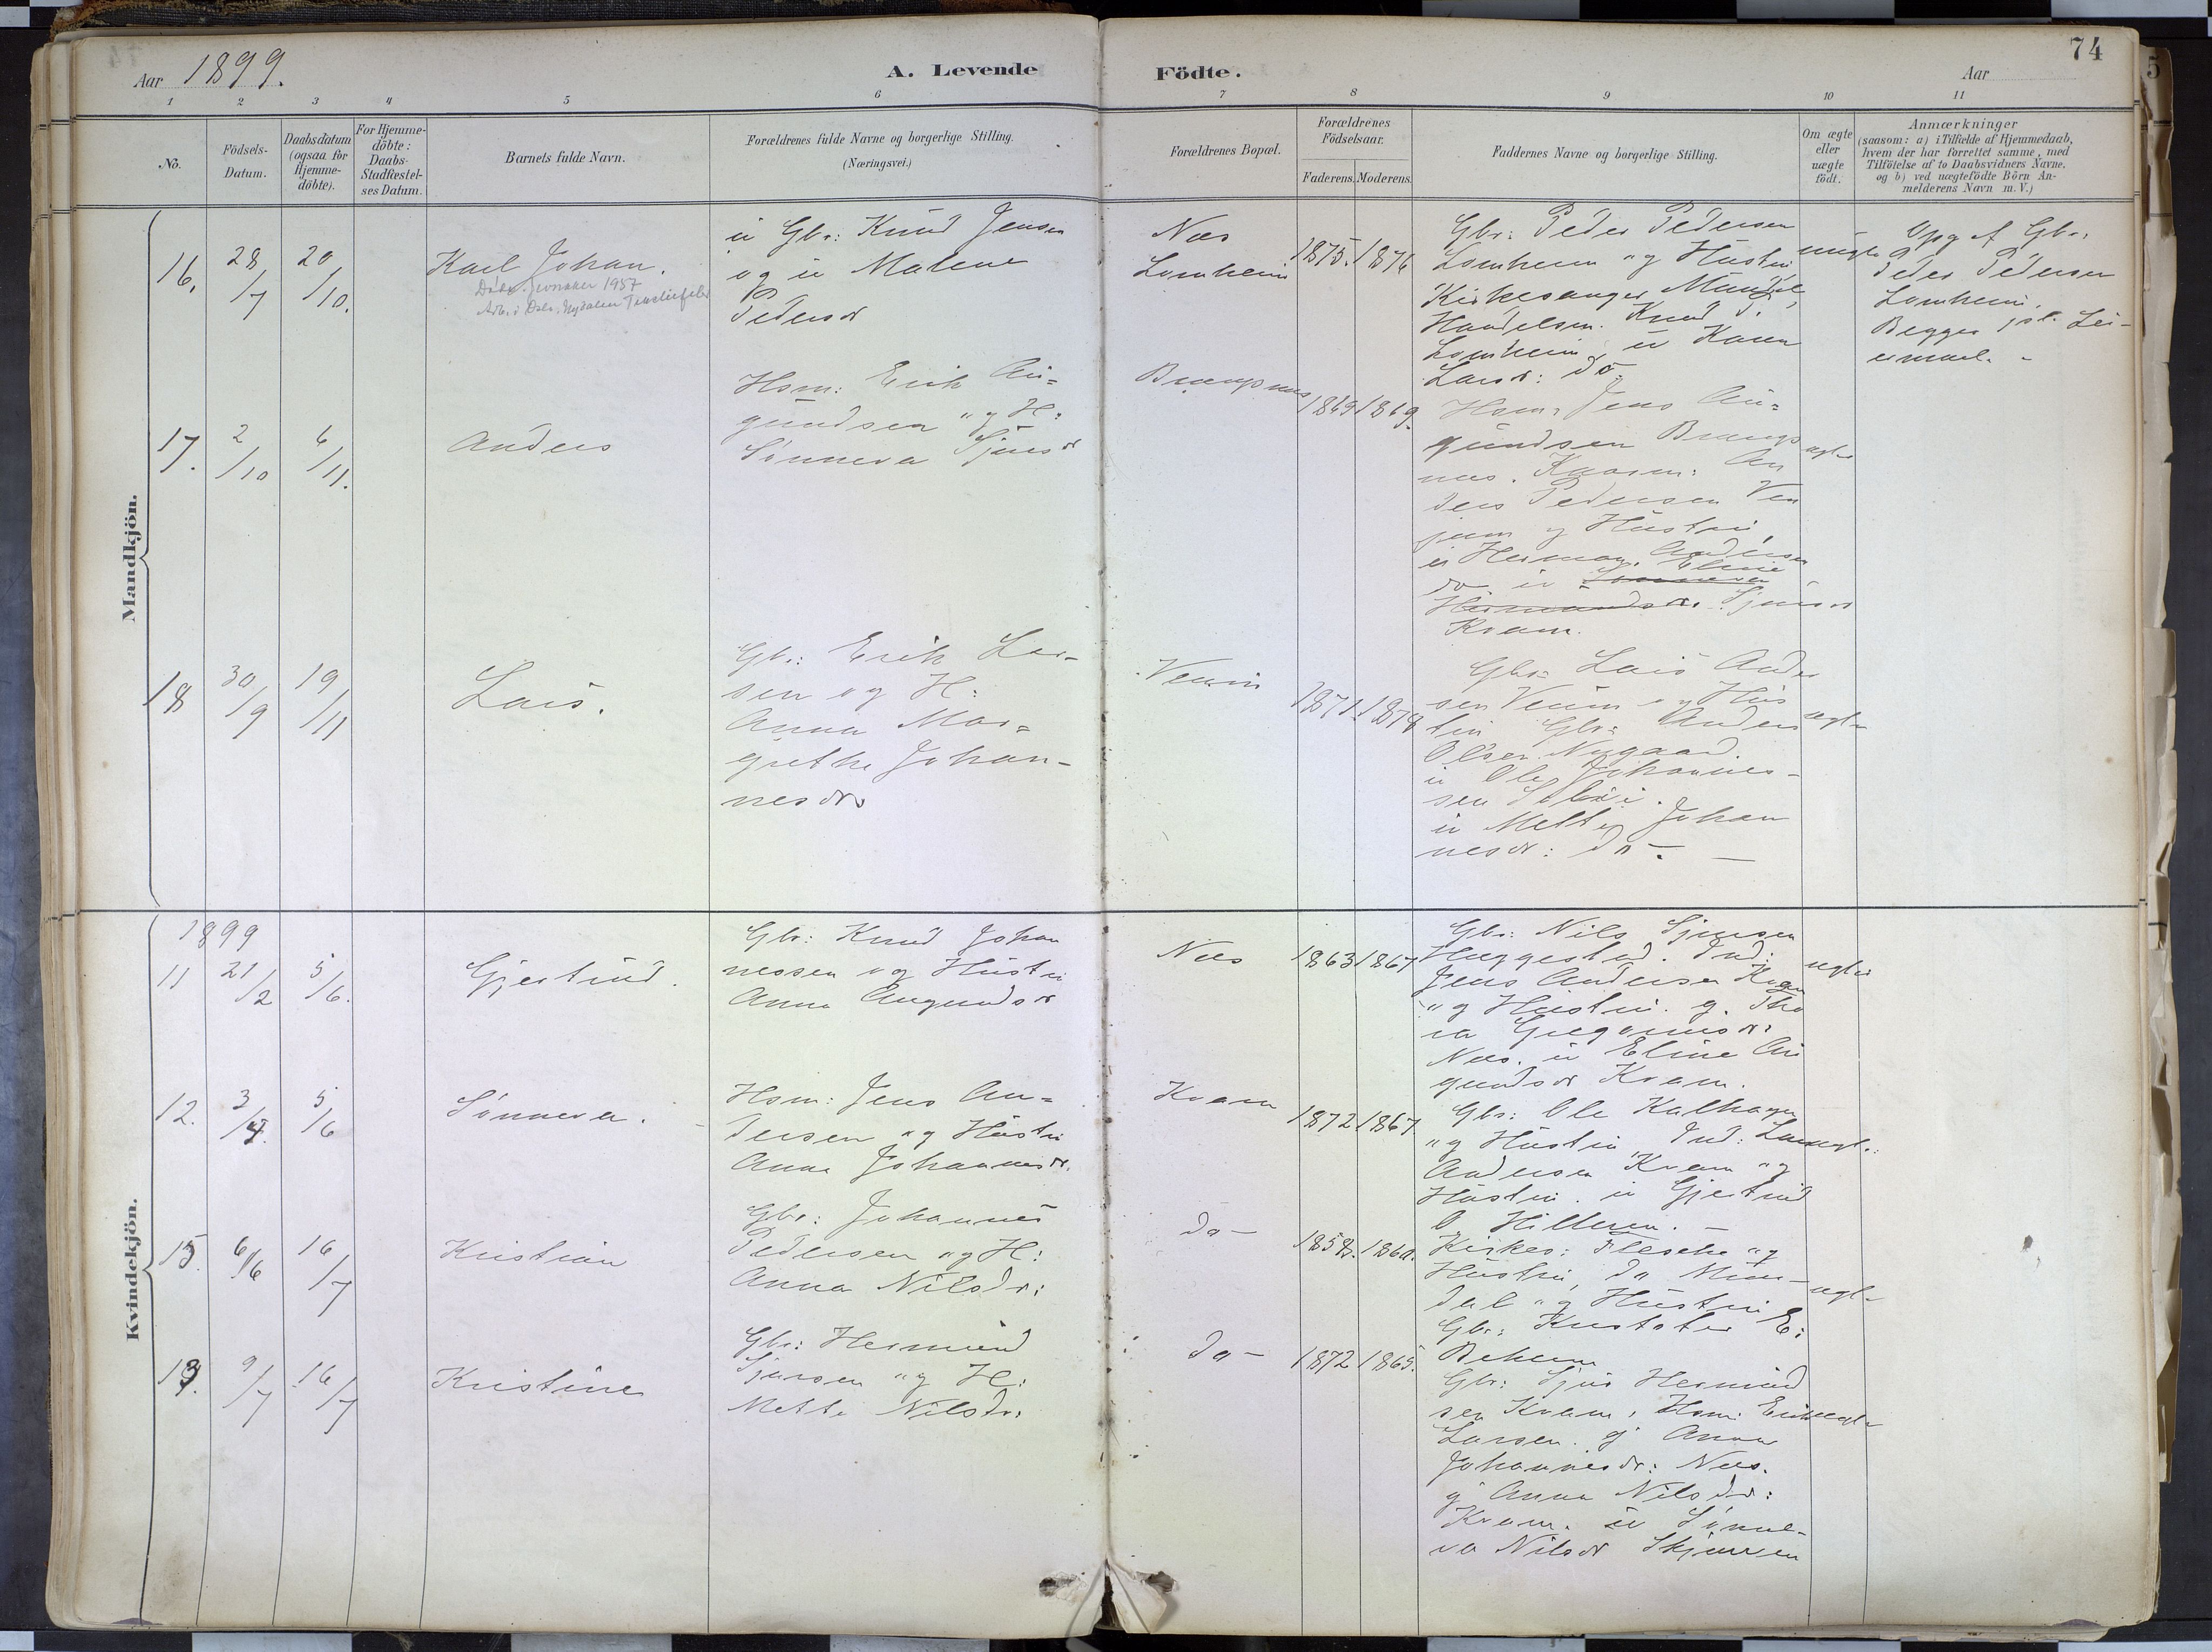 74
Aar 1899.
A. Levende Födte.
Aar
1 2 3 4 5 6 7 8 9 10 11
No.
Födsels-Datum.
Daabsdatum (ogsaa for Hjemme-döbte).
For Hjemme-döbte: Daabs-Stadfæstel-ses Datum.
Barnets fulde Navn.
Forældrenes fulde Navne og borgerlige Stilling.
(Næringsvei.)
Forældrenes Bopæl.
Forældrenes Födselsaar.
Faderens. Moderens.
Faddernes Navne og borgerlige Stilling.
Om ægte eller uægte födt.
Anmærkninger
(saasom: a) i Tilfælde af Hjemmedaab,
hvem der har forrettet samme, med
Tilföielse af to Daabsvidners Navne.
og b) ved uægtefödte Börn An-
melderens Navn m. V.)
Mandkjön.
16. 28/7 20/10.
Karl Johan.
1957
u Gbr: Knud Jensen
og u Malene
Pedersdr
Næs
Lomheim
1875. 1876
Gbr: Peder Pedersen
Lomheim og Hustru
Kirkesanger Mundal,
Handelsm. Knud J.
Lomheim, u Karen
Larsdr: do.
uægte
Opg af Gbr.
Peder Pedersen
Lomheim.
Begges 1st. Lei-
ermaal. -
17. 2/10 6/11.
Anders
Hsm: Erik Au=
gundsen og H:
Sønneva Sjursdr
1869 1869.
Hsm: Jens Au=
gundsen
An
ders Pedersen Ven
jum og Hustru,
Eline
Sjursdr
Kvam.
ægte
18 30/9 19/11
Lars.
Gbr: Erik Lar-
sen og H:
Anna Mar=
grethe Johan-
nesdr.
Venum
1871. 1878
Gbr: Lars Ander
sen Venum og Hus
tru Gbr: Anders
Olsen Nygaard.
u Ole Johannes-
sen
u Mette Johan
nesdr: do -. -
ægte
Kvindekjön.
1899
11 21/2 5/6.
Gjertrud.
Gbr: Knud Johan
nessen og Hustru
Anna Augundsdr
Næs
1863 1867
Gbr: Nils Sjursen
Hæggestad. Ind:
Jens Andersen Kvam
og Hustru. g. Tho
ra
Næs. u Eline Au
gundsdr Kvam.
ægte
12. 3/4. 5/6
Sønneva.
Hsm: Jens An=
dersen og Hustru
Anna Johannesdr.
Kvam
1872 1867
Gbr: Ole Kalhagen
og Hustru, Ind: Lars
Andersen Kvam og
Hustru. u Gjertrud
O. Hilleren. -
ægte.
13. 6/6 16/7
Kristian
Gbr: Johannes
Pedersen og H:
Anna Nilsdr:
Do -
1858. 1860.
Kirkes: Flesche og
Hustru, do Mun-
dal og Hustru
Gbr: Kristofer E:
Beheim
ægte
9/7 16/7
Kristine
Gbr: Hermund
Sjursen og H:
Mette Nilsdr:
Do -
1872 1865.
Gbr: Sjur Hermund
sen Kvam, Hsm: Erik
Larsen. g Anna
Johannesdr: Næs.
g Anna Nilsdr:
Kvam. u Sønne-
va Nilsdr Skjerven
ægte